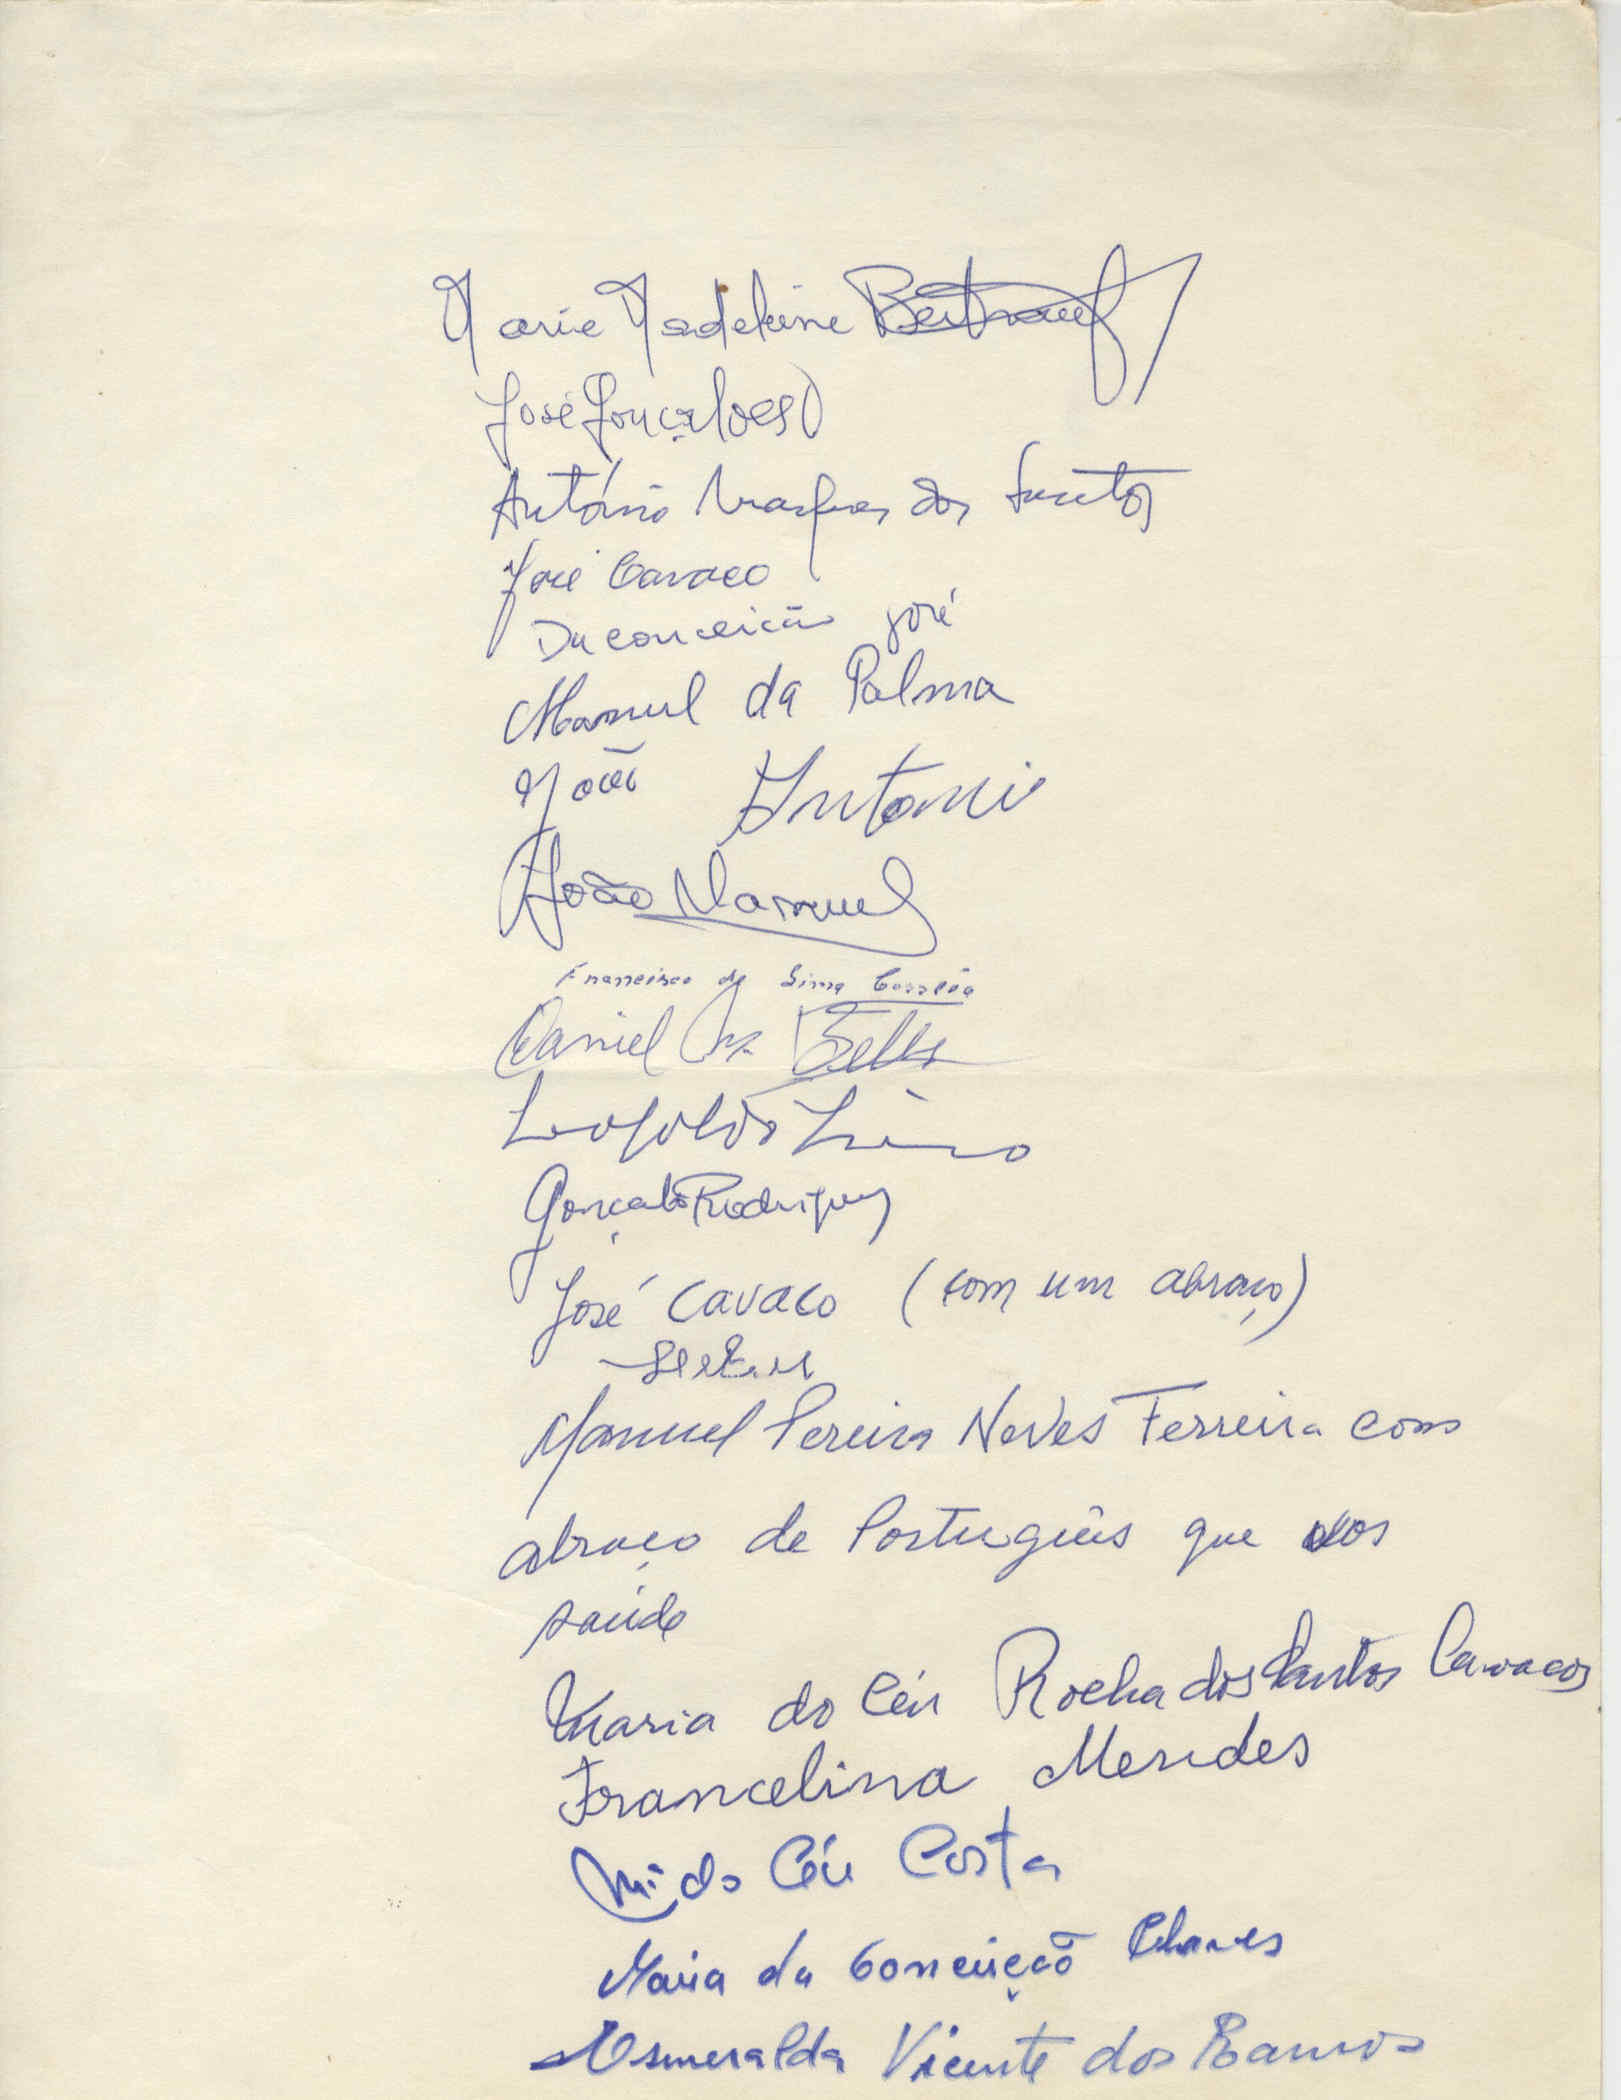 Marie Madeleine Bertrand
José Gonçalves
António dos Santos
José Cavaco
Da conceição José
Manuel da Palma
João Antonio
João Manuel
Francisco de Lima Correia
Daniel
Leopoldo
Gonçalo Rodrigues
José Cavaco (com um abraço)
Manuel Pereira Neves Ferreira com
abraço de Português que vos
saúda
Maria do Céu Rocha dos Santos Cavacos
Francelina Mendes
Mª do Céu Costa
Maria da Conceição Chaves
Esmeralda Vicente dos Ramos